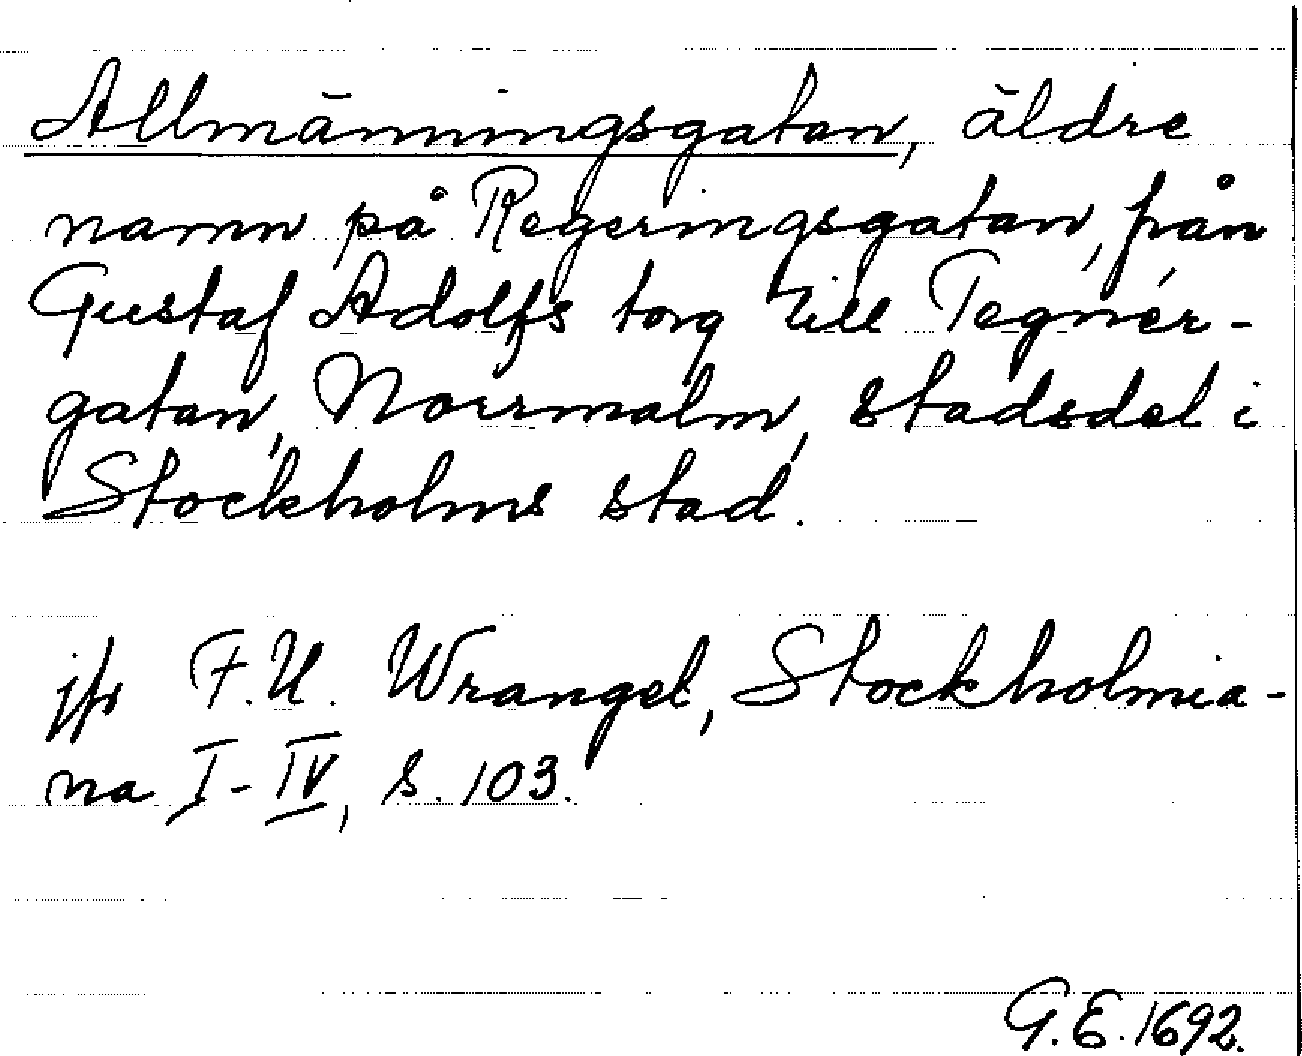 Allmänningsgatan, äldre
namn på Regeringsgatan, från
Gustaf Adolfs torg till Tegnér-
gatan, Norrmalm, stadsdel i
Stockholms stad.
jfr F.U. Wrangel, Stockholmia-
na I-IV, s. 103.
G.E. 1692.